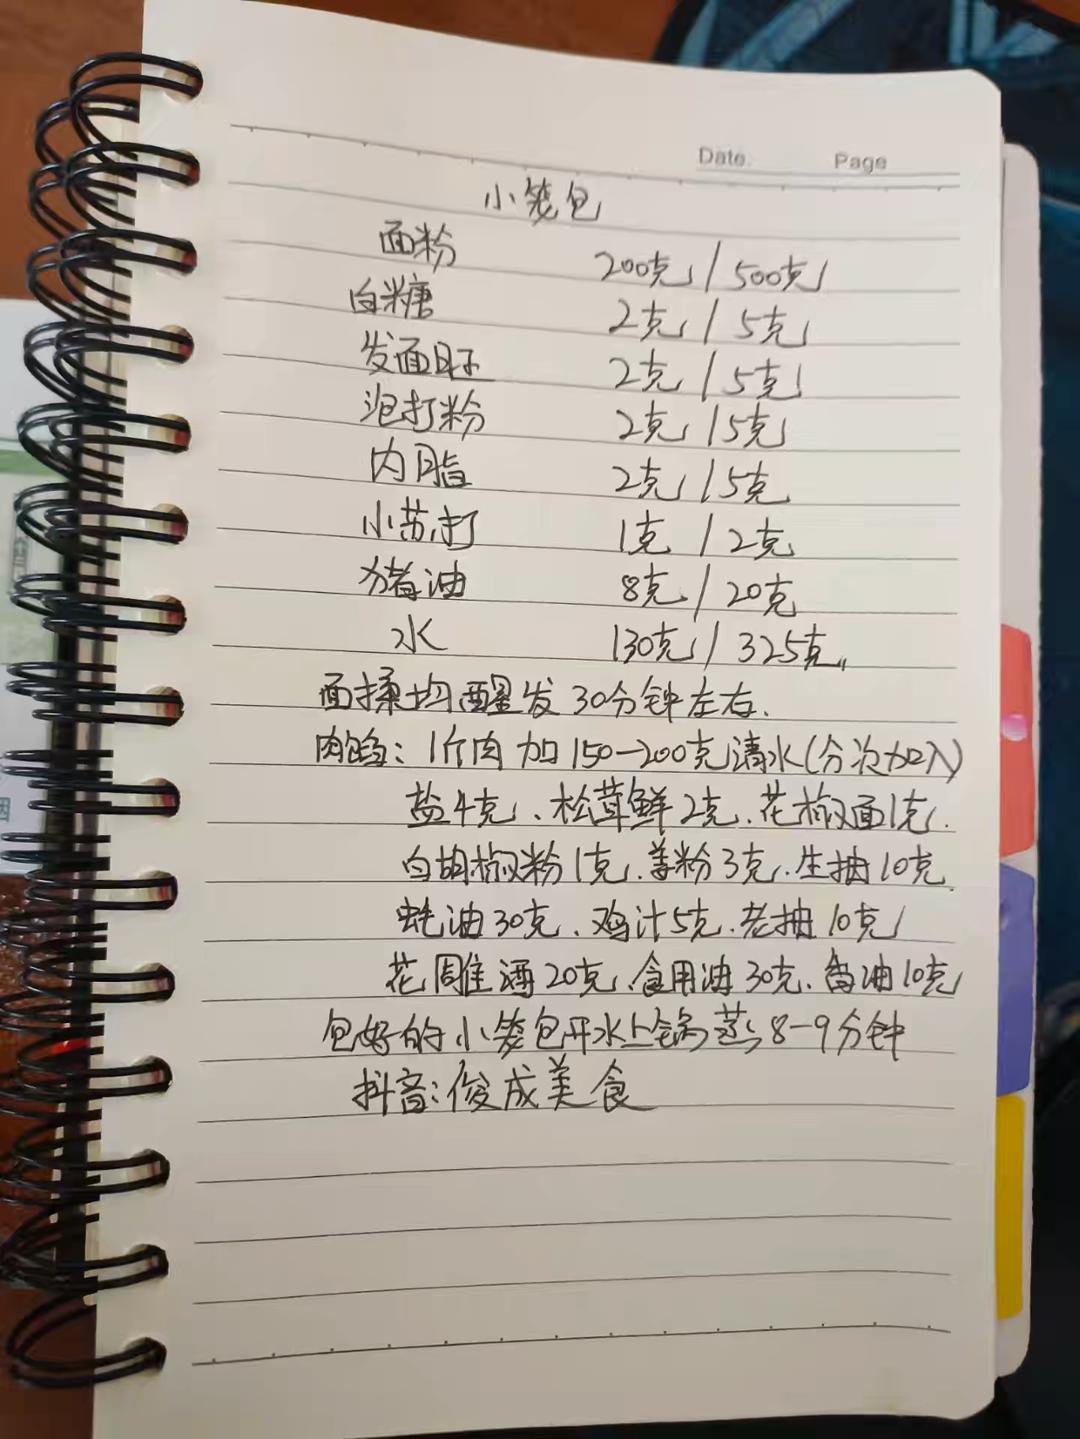 Date. Page
小笼包
面粉 200克/500克
白糖 2克/5克
发面肝 2克/5克
泡打粉 2克/5克
内脂 2克/5克
小苏打 1克/2克
猪油 8克/20克
水 130克/325克
面揉均醒发30分钟左右.
肉馅: 1斤肉加150-200克清水(分次加入)
盐4克、松茸鲜2克、花椒面1克.
白胡椒粉1克、姜粉3克、生抽10克
蚝油30克、鸡汁5克、老抽10克
花雕酒20克、食用油30克、香油10克
包好的小笼包开水上锅蒸8-9分钟
抖音:俊成美食